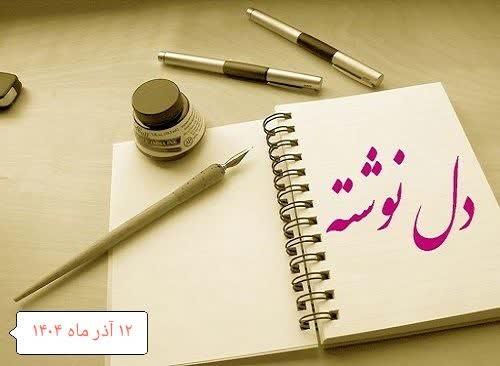 دل نوشته
۱۲ آذر ماه ۱۴۰۴